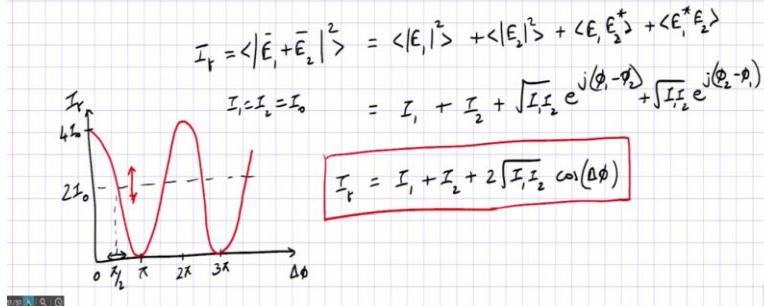 I_r = <|Ē₁+Ē₂|²> = <|E₁|²> + <|E₂|²> + <E₁E₂*> + <E₁*E₂>
I₁=I₂=I₀ = I₁ + I₂ + √I₁I₂ e^j(ϕ₁-ϕ₂) + √I₁I₂ e^j(ϕ₂-ϕ₁)
I_r = I₁ + I₂ + 2√I₁I₂ cos(Δϕ)
I_r
4I₀
2I₀
0 π/2 π 2π 3π Δϕ